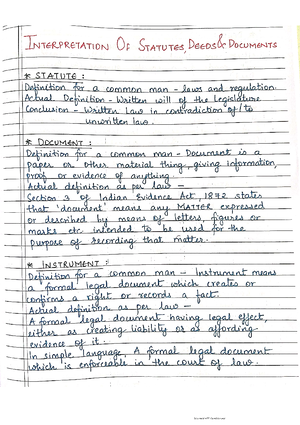 INTERPRETATION OF STATUTES, DEEDS & DOCUMENTS
* STATUTE :
Definition for a common man - laws and regulation.
Actual Definition - Written will of the legislature
Conclusion - Written law in contradiction of/to
unwritten law.
* DOCUMENT :
Definition for a common man - Document is a
paper or other material thing, giving information,
proof or evidence of anything.
Actual definition as per law -
Section 3 of Indian Evidence Act, 1872 states
that 'document' means any MATTER expressed
or described by means of letters, figures or
marks etc. intended to be used for the
purpose of recording that matter.
* INSTRUMENT :
Definition for a common man - Instrument means
a formal legal document which creates or
confirms a right or records a fact.
Actual definition as per law -
A formal legal document having legal effect,
either as creating liability or as affording
evidence of it.
In simple language, A formal legal document
which is enforceable in the court of law.